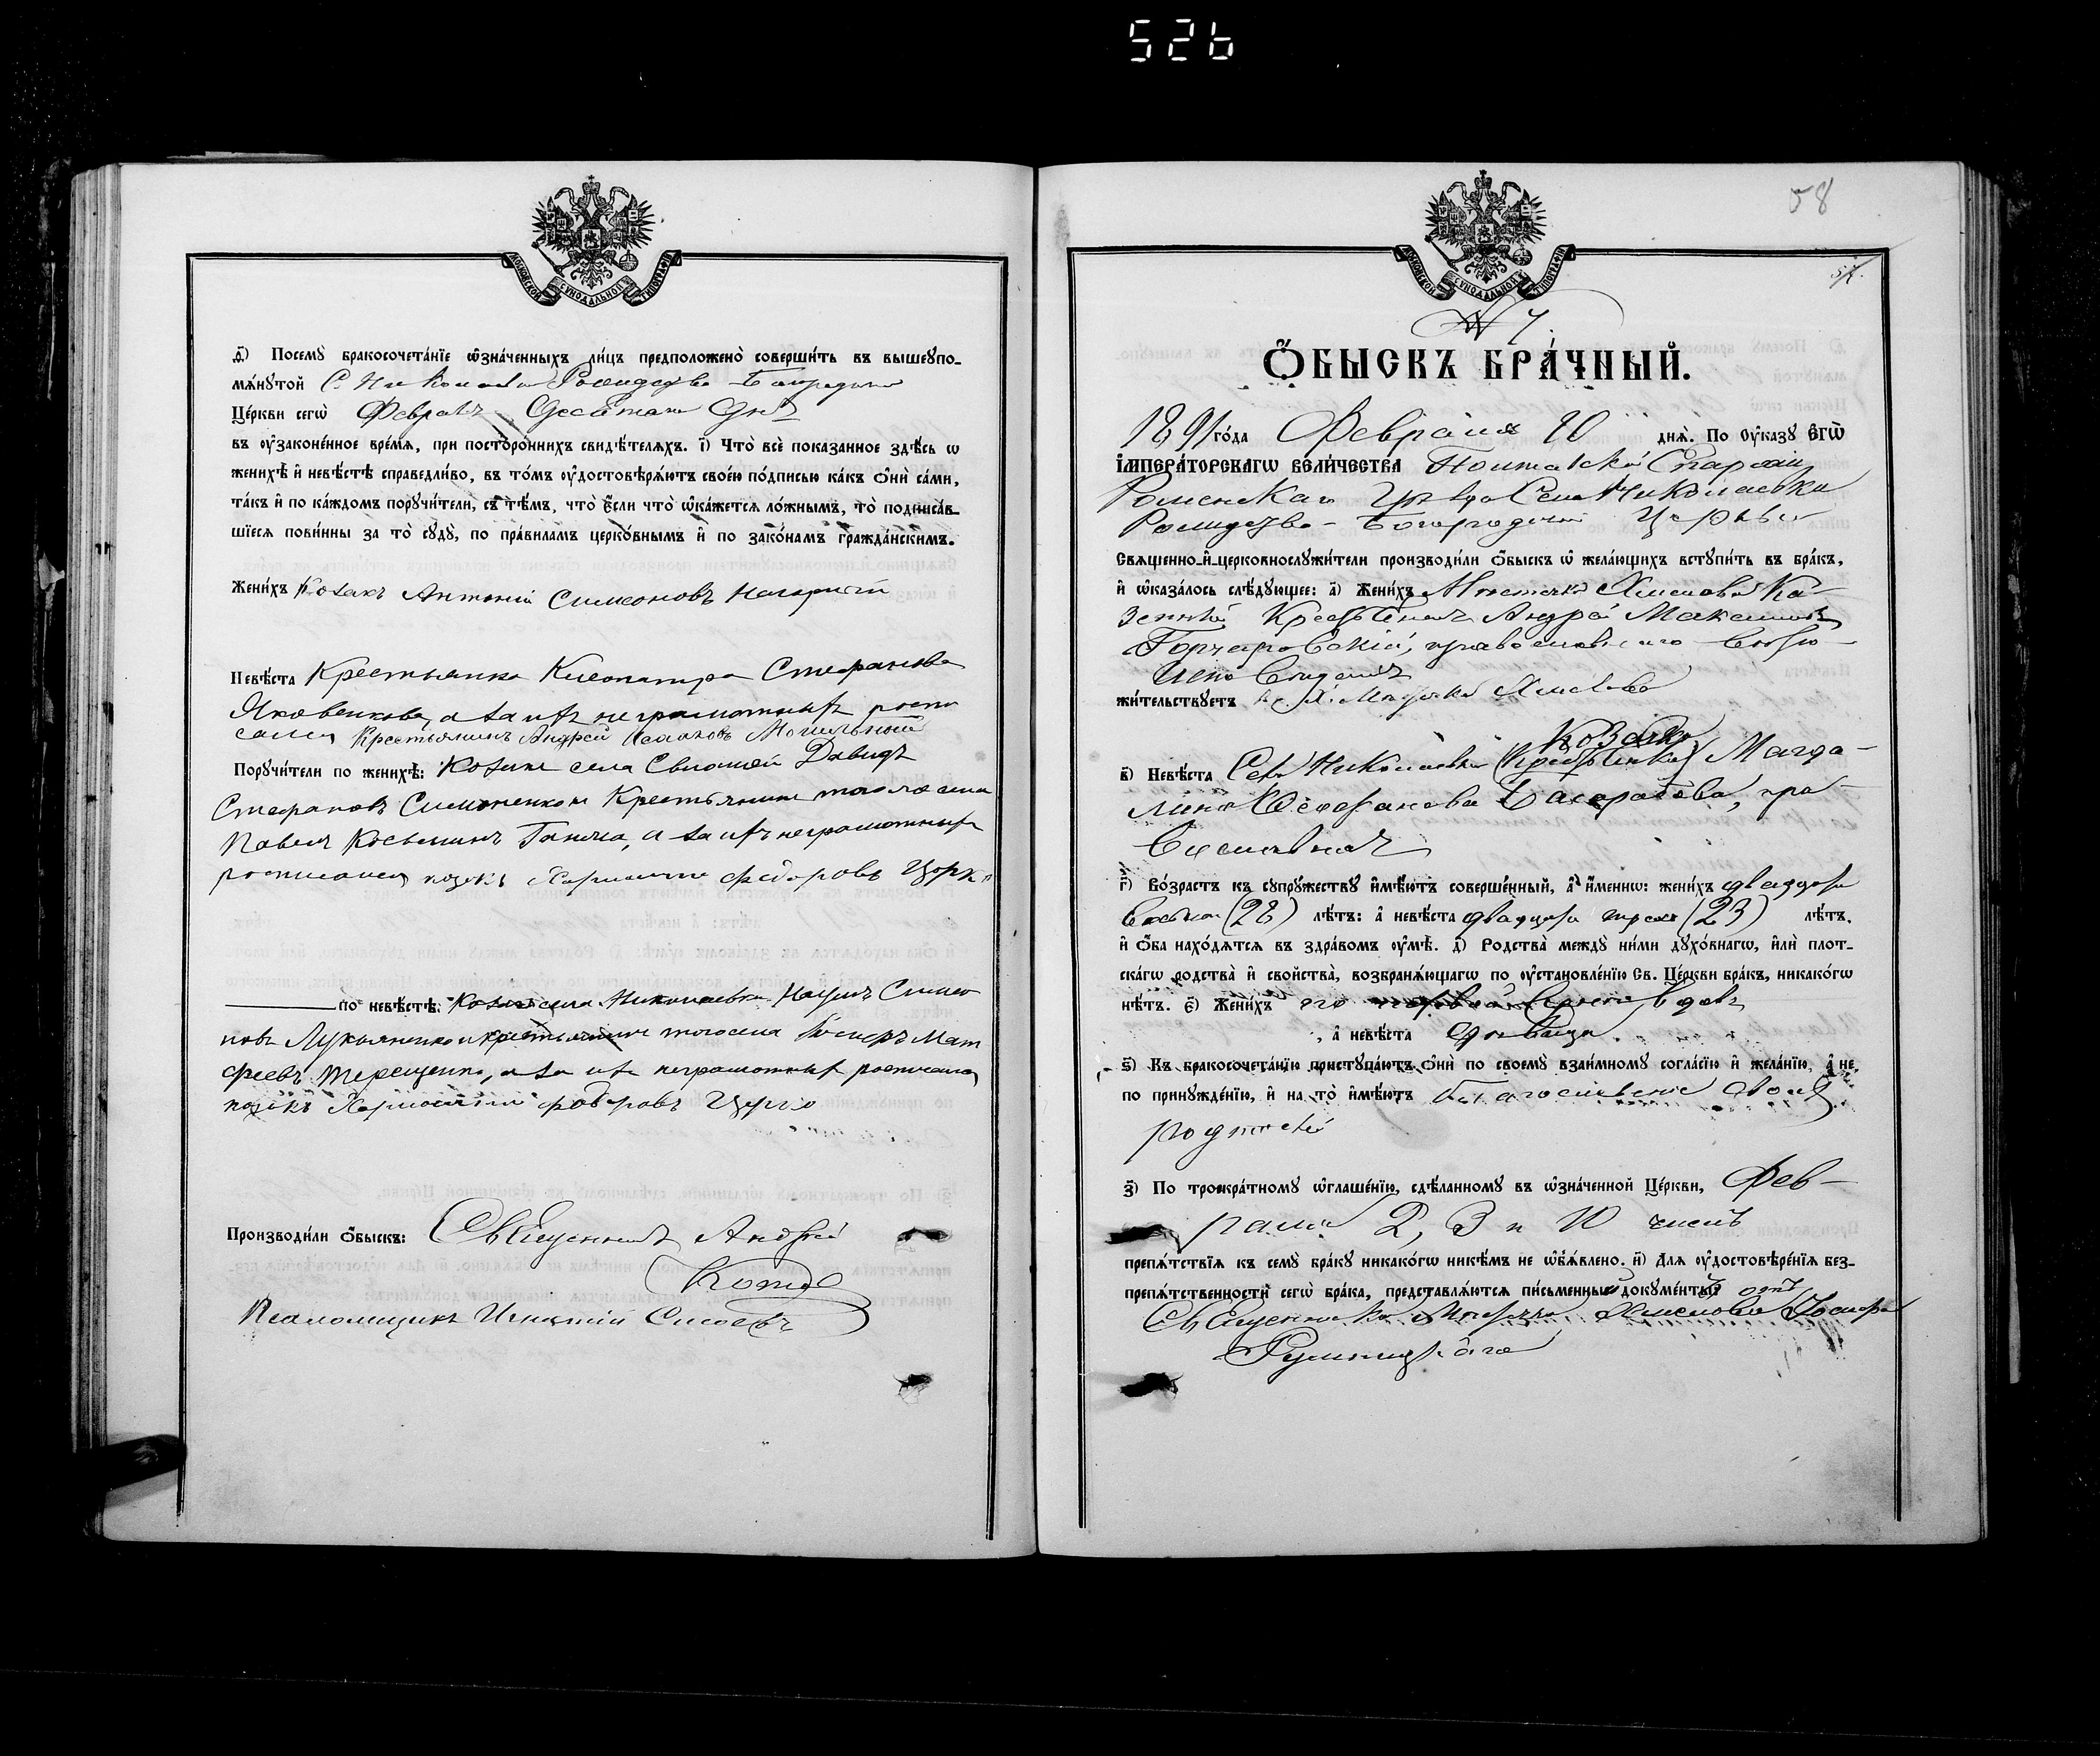 526
МОСКОВСКОЙ СѴНОДАЛЬНОЙ ТИПОГРАФІИ
ѳ҃) Посемꙋ̀ бракосочета́нїе ѡ҆зна́ченныхъ ли́цъ предположено̀ соверши́ть въ вышеꙋпо-
мѧ́нꙋтой С. Николаевки Рождество-Богородичной
Це́ркви сегѡ̀ Февраля Десятаго дня
въ ᲂу҆законе́нное вре́мѧ, при посторо́ннихъ свидѣ́телѧхъ. і҃) Что̀ всѐ показанное здѣ́сь ѡ
женихѣ̀ и҆ невѣ́стѣ справедли́во, въ то́мъ ᲂу҆достовѣрѧ́ютъ свое́ю по́дписью ка́къ ѻ҆нѝ са́ми,
та́къ и҆ по ка́ждомъ порꙋчи́тели, съ тѣ́мъ, что̀ є҆́сли что̀ ѡ҆ка́жетсѧ ло́жнымъ, то̀ подписа́в-
шїесѧ пови́нны за то̀ сꙋдꙋ̀, по пра́виламъ церко́внымъ и҆ по зако́намъ гражда́нскимъ.
Жени́хъ Козакъ Антоній Симеоновъ Нагорный
Невѣ́ста Крестьянка Клеопатра Стефанова
Яковенкова, а за ихъ неграмотныхъ роспи
сался Крестьянинъ Андрей Исааковъ Могильный
Порꙋчи́тели по женихѣ̀: Козакъ села Сваромей Давидъ
Стефановъ Симоненко и Крестьянинъ того же села
Павелъ Косьминъ Ганжа, а за ихъ неграмотныхъ
росписался козакъ Харлампій Федоровъ Цорк
по невѣ́стѣ: Козакъ села Николаевки Симео
новъ Лукьяненко и крестьянинъ того села Іосифъ Мат
феевъ Терещенко, а за ихъ неграмотныхъ росписался
козакъ Харлампій Федоровъ
Производи́ли ѻ҆́быскъ: Священникъ Андрей
Псаломщикъ Игнатій Сисоевъ
58
МОСКОВСКОЙ СѴНОДАЛЬНОЙ ТИПОГРАФІИ
№ 7.
Ѻ҆́БЫСКЪ БРА́ЧНЫЙ.
1891 го́да Февраля 10 днѧ̀. По ᲂу҆ка́зꙋ Є҆ГѠ̀
І҆МПЕРА́ТОРСКАГѠ ВЕЛИ́ЧЕСТВА Полтавской Епархіи
Роменскаго Уѣзда Села Николаевки
Рождество-Богородичной Церкви
Свѧще́нно-и҆-церковнослꙋжи́тели производи́ли ѻ҆́быскъ ѡ҆ жела́ющихъ встꙋпи́ть въ бра́къ,
и҆ ѡ҆каза́лось слѣ́дꙋющее: а҃) Жени́хъ Мѣстечка Хмелова Ка-
зенный Крестьянинъ Андрей Максимовъ
Гончаровскій, православнаго вѣро-
исповѣданія
жи́тельствꙋетъ въ М. Мѣстечкѣ Хмеловѣ
в҃) Невѣ́ста Села Николаевки (Крестьянка) Козачка Магда-
лина Стефанова, пра-
вославная
г҃) Во́зрастъ къ сꙋпрꙋ́жествꙋ и҆мѣ́ютъ соверше́нный, а҆ и҆́менно: жени́хъ двадцати
восьми (28) лѣ́тъ: а҆ невѣ́ста двадцати трехъ (23) лѣ́тъ,
и҆ ѻ҆́ба нахо́дѧтсѧ въ здра́вомъ ᲂу҆мѣ̀. д҃) Родства̀ междꙋ̀ ни́ми дꙋхо́внагѡ, и҆лѝ плот-
ска́гѡ родства̀ и҆ сво́йства, возбранѧ́ющагѡ по ᲂу҆становле́нїю Св. Це́ркви бра́къ, никако́гѡ
нѣ́тъ. є҃) Жени́хъ вдовъ
, а҆ невѣ́ста дѣвица.
ѕ҃) Къ бракосочета́нїю пристꙋпа́ютъ ѻ҆нѝ по своемꙋ̀ взаи́мномꙋ согла́сїю и҆ жела́нїю, а҆ не
по принꙋжде́нїю, и҆ на то̀ и҆мѣ́ютъ благословеніе своихъ
родителей
з҃) По троекра́тномꙋ ѡ҆глаше́нїю, сдѣ́ланномꙋ въ ѡ҆зна́ченной Це́ркви, Фев-
раля 2, 3 и 10 чиселъ
препѧ́тствїѧ къ семꙋ̀ бра́кꙋ никако́гѡ никѣ́мъ не ѡ҆б̾ѧ́влено. и҃) Длѧ ᲂу҆достовѣре́нїѧ без-
препѧ́тственности сегѡ̀ бра́ка, представлѧ́ютсѧ пи́сьменный докꙋме́нтъ отъ
Священника Мѣстечка Хмелова Іосифа
Румницкаго